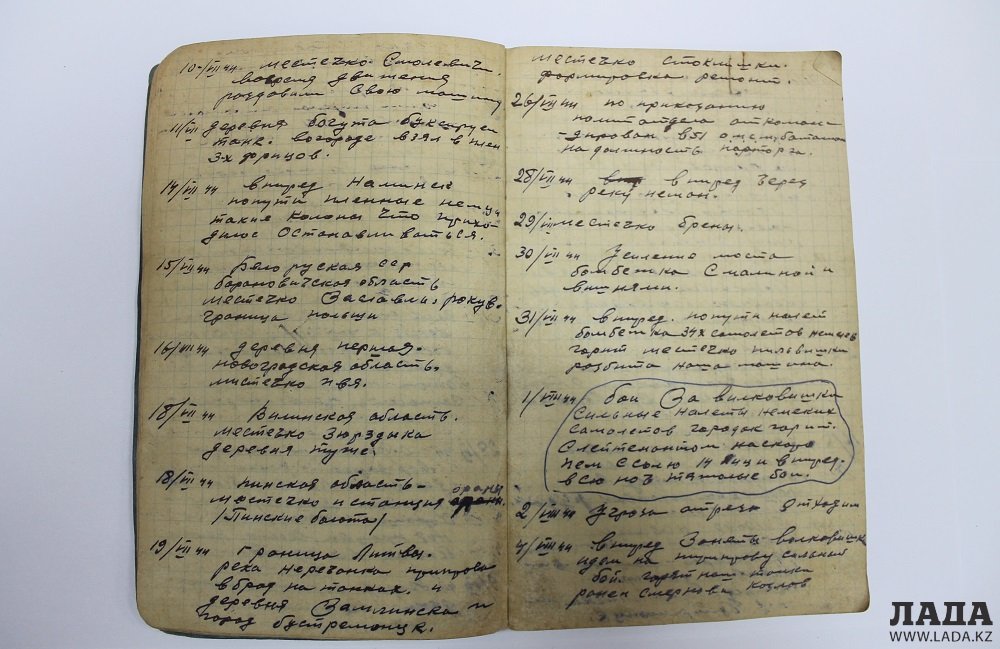 10/VII 44 местечко Смолевичи.
вовремя движения
раздавили свою машину
11/VII деревня богута буксируем
танк. вогороде взял в плен
3-х фрицов.
14/VII 44 вперед Наминск
попути пленные немцы
такие колоны что прихо-
дилос останавливаться.
15/VII 44 Белоруская сср
барановичская область
местечко Заславль, раков.
граница польши
16/VII 44 деревня первая.
новоградская область,
мистечко ивя.
18/VII 44 Вилинская область.
местечко Эюрздыка
деревня туже.
18/VII 44 пинская область-
местечко и станция орани
/Пинские болота/
19/VII 44 Граница Литвы.
река неречанка
вброд на танках. и
деревня и
город бустремонцк.
местечко стоклишки.
формировка ремонт.
26/VII 44 по приказанию
политотдела откоманд
-дирован в 51 омсцбаталион
на должность парторга.
28/VII 44 вперед Через
реку неман.
29/VII местечко брены.
30/VII 44 Усиление моста
бомбежка Смалиной и
вишнями.
31/VII 44 вперед. попути налет
бомбежка 34х самолетов немцев
гарит местечко пильвишки
розбита наша машина.
1/VIII 44 бои За вилковишки
сильные налеты немеких
самолетов городок гарит.
С лейтенантом наскоро
пем с солю 14 яиц и вперед.
всю ноч тяжолые бои.
2/VIII 44 Угроза отреза отходим
4/VIII 44 вперед Заняты волковишк
идем на сильный
бой. гарят наш танки
ранен Смернова Козлов
ЛАДА
WWW.LADA.KZ